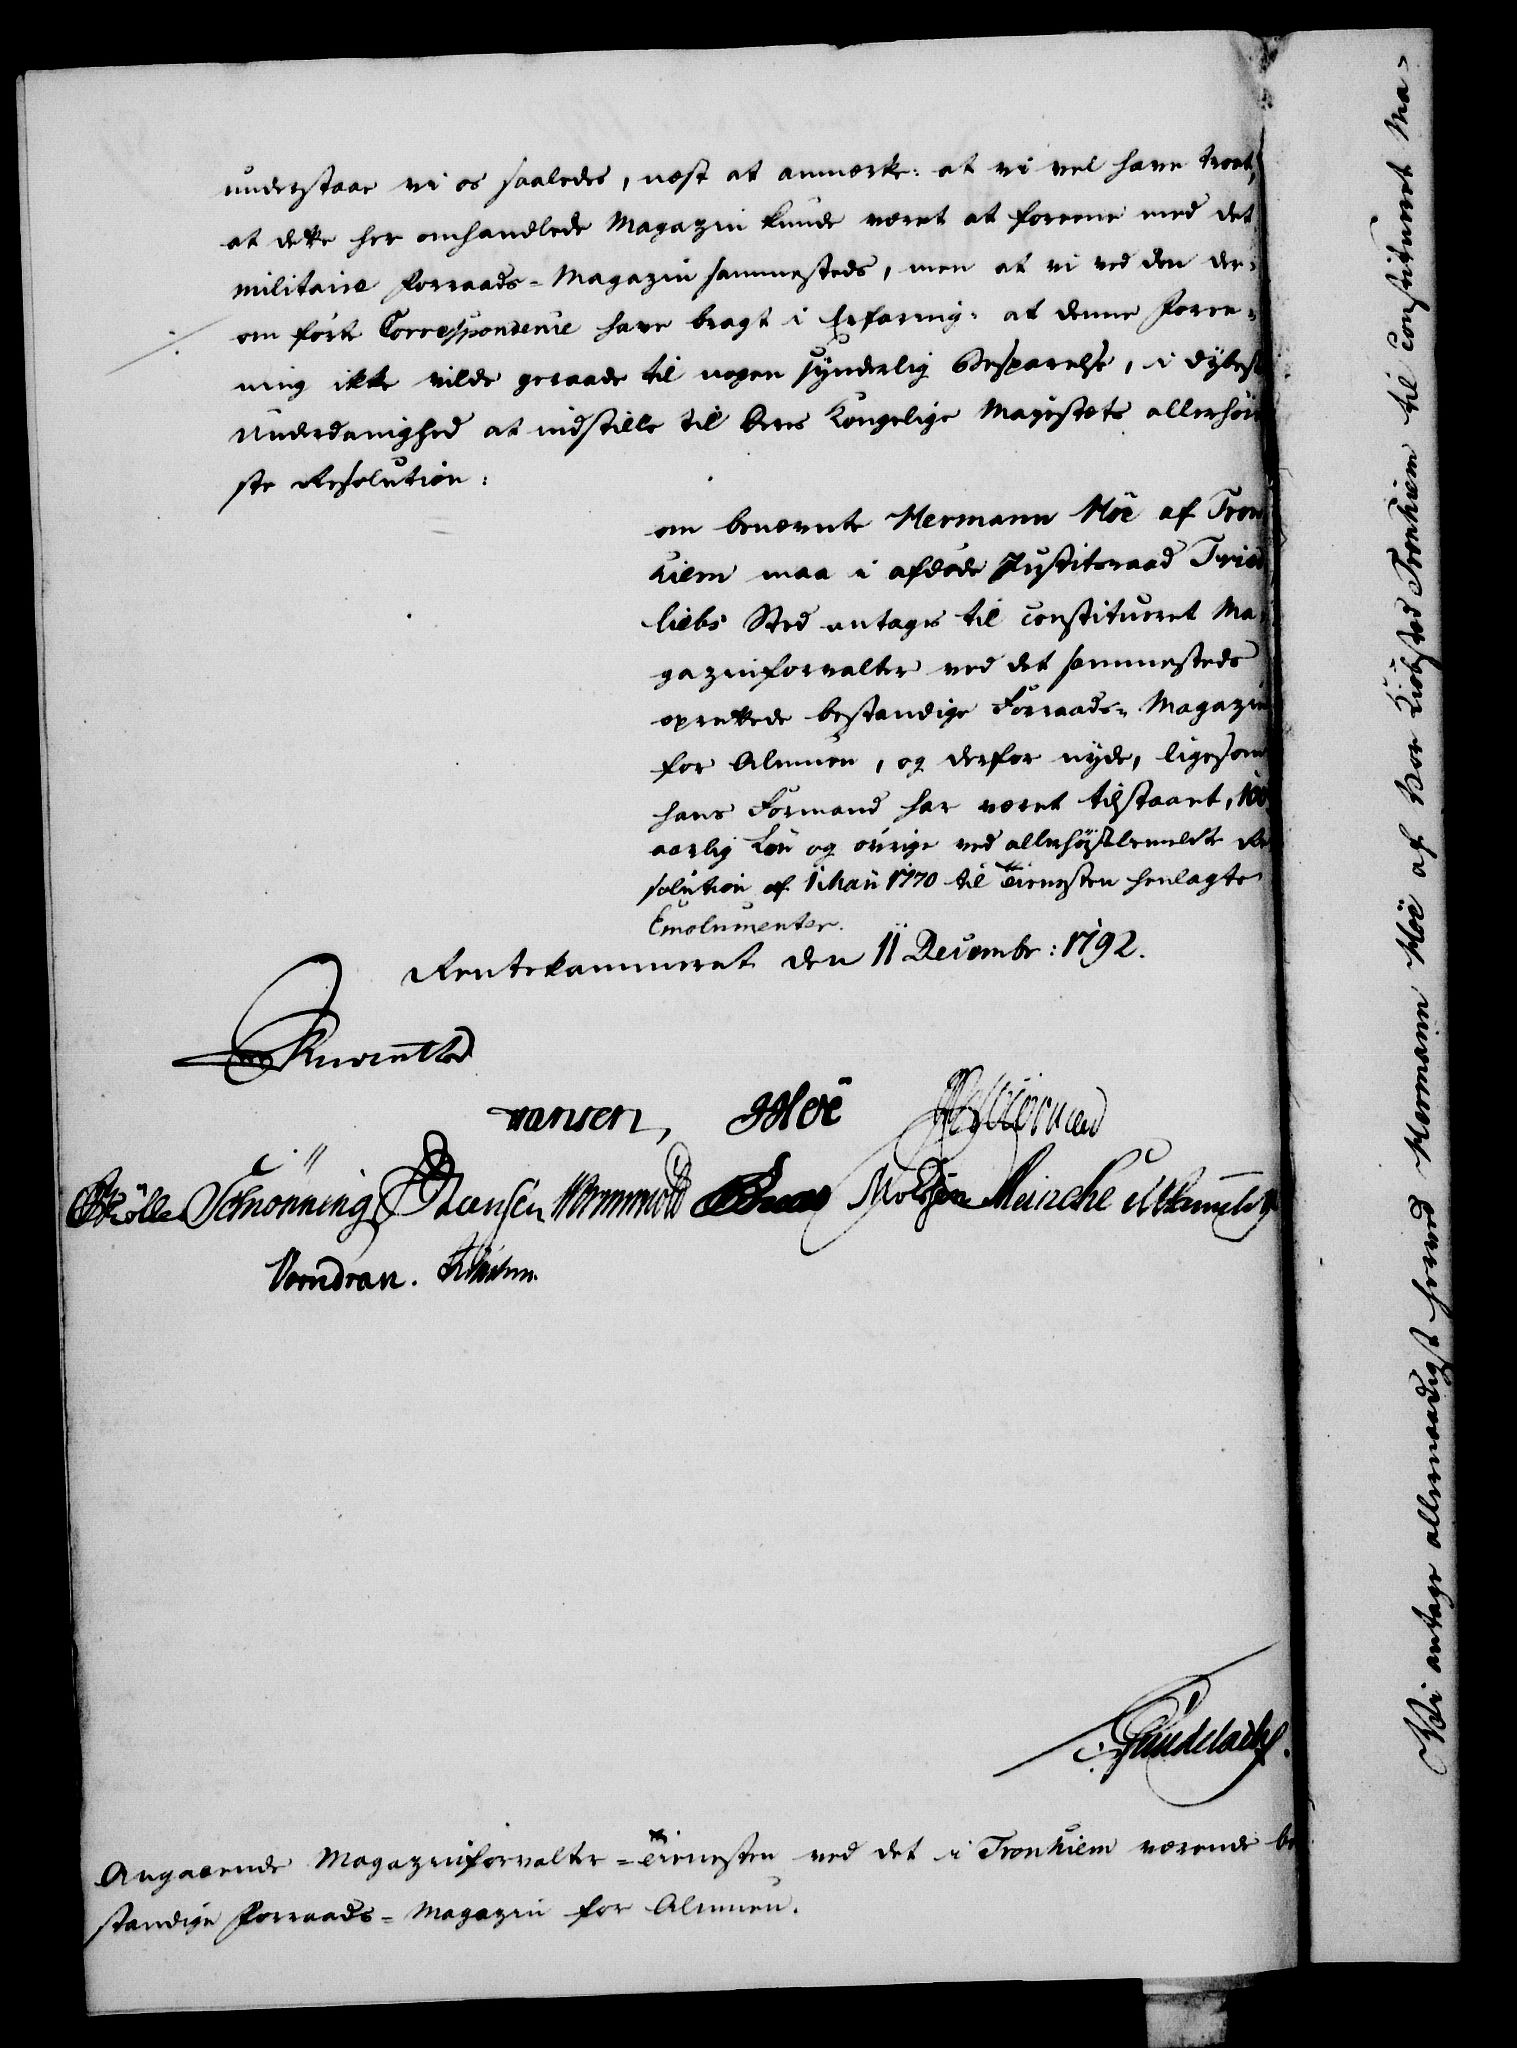 understaae vi os saaledes, næst at anmærke: at vi vel have troet,
at dette her omhandlede Magazin kunde været at foreene med det
militaire Forraads-Magazin sammesteds, men at vi ved den der-
om førte Correspondence have bragt i Erfaring: at denne Foree-
ning ikke vilde geraade til nogen synderlig Besparelse, i dybest
Underdanighed at indstille til Deres Kongelige Majestæts allerhøi
ste Resolution:
om benævnte Hermann Høe af Tron
hiem maa i afdøde Justitsraad Fried
liebs Sted antages til constitueret Ma
gazinforvalter ved det sammesteds
oprettede bestandige Forraads-Magazin
for Almuen, og derfor nyde, ligesom
hans Formand har været tilstaaet, 100
aarlig Løn og øvrige ved allerhøistbemeldte Re
solution af 1 Maii 1770 til Tienesten henlagte
Emolumenter.
Rentekammeret den 11 Decembr: 1792.
Hansen, Høe
Schönning Hansen Wormwold Meinche
Vorndran.
Angaaende Magazinforvalter-Tienesten ved det i Tronhiem værende be
standige Forraads-Magazin for Almuen.
Vi antage allernaadigst herved Hermann Høe af Vor Kiøbsted Tronhiem til constitueret Ma-